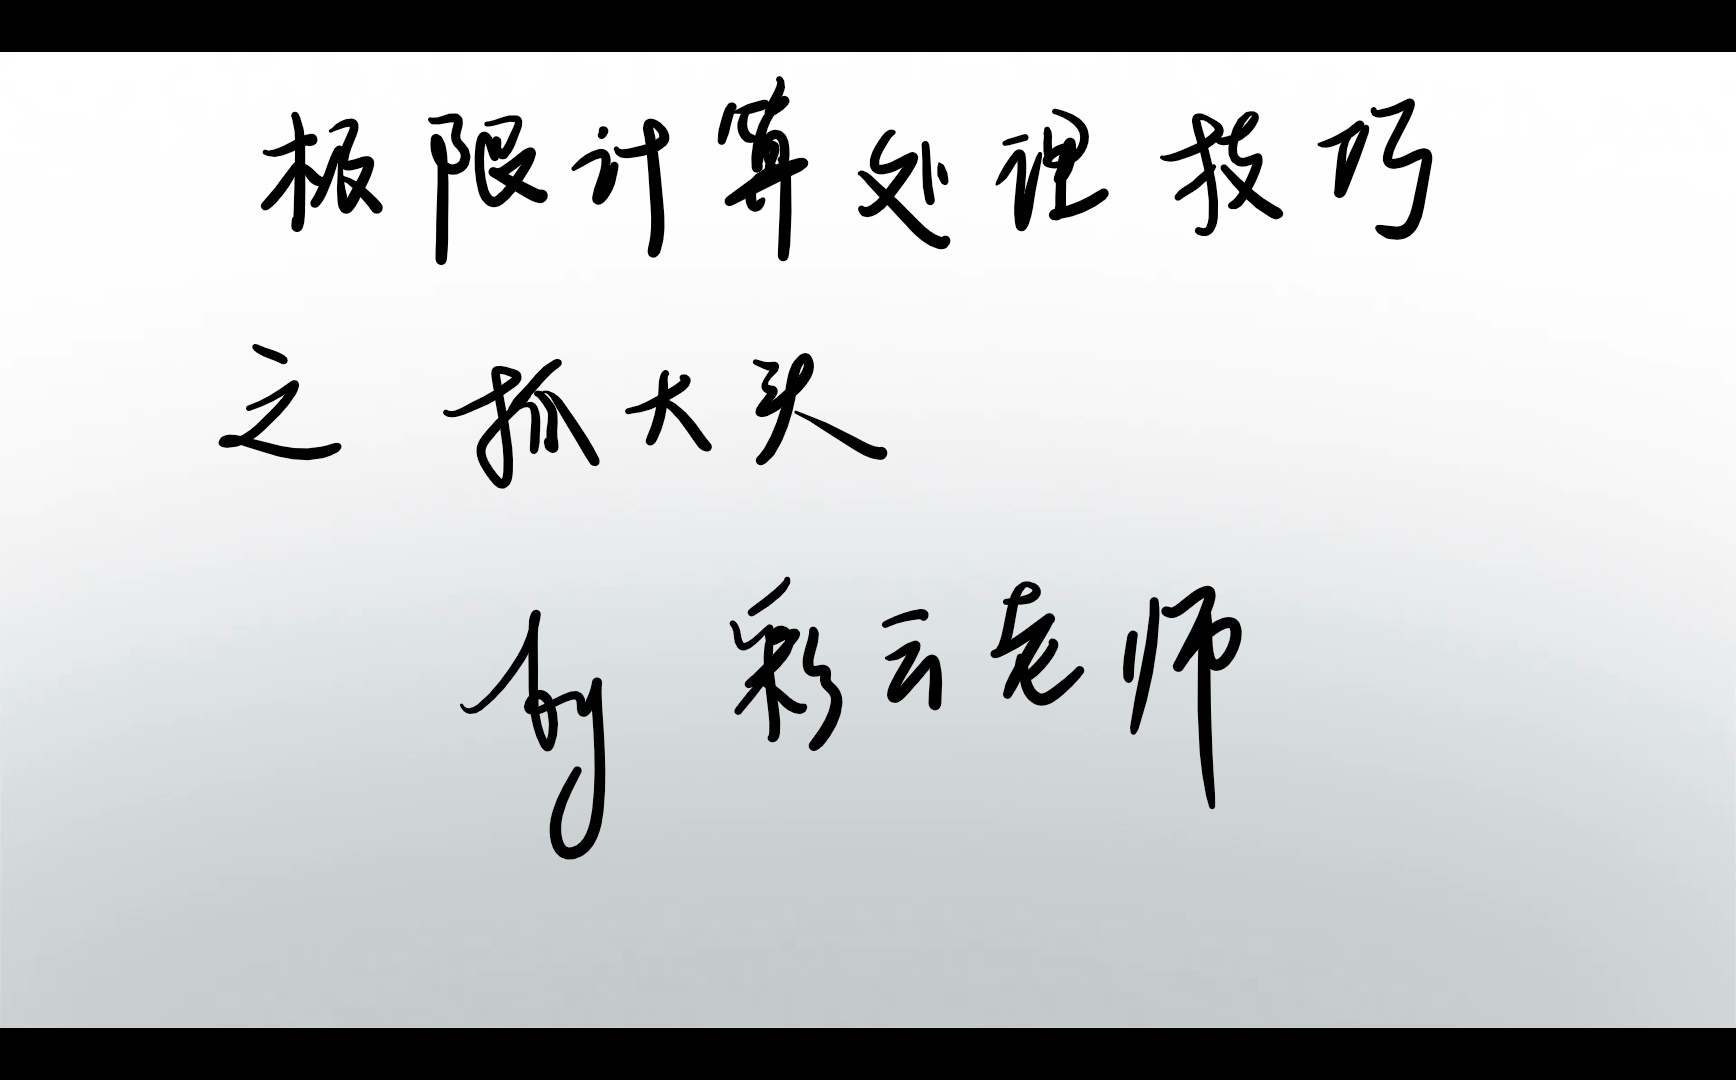 极限计算处理技巧
之 抓大头
by 彩云老师